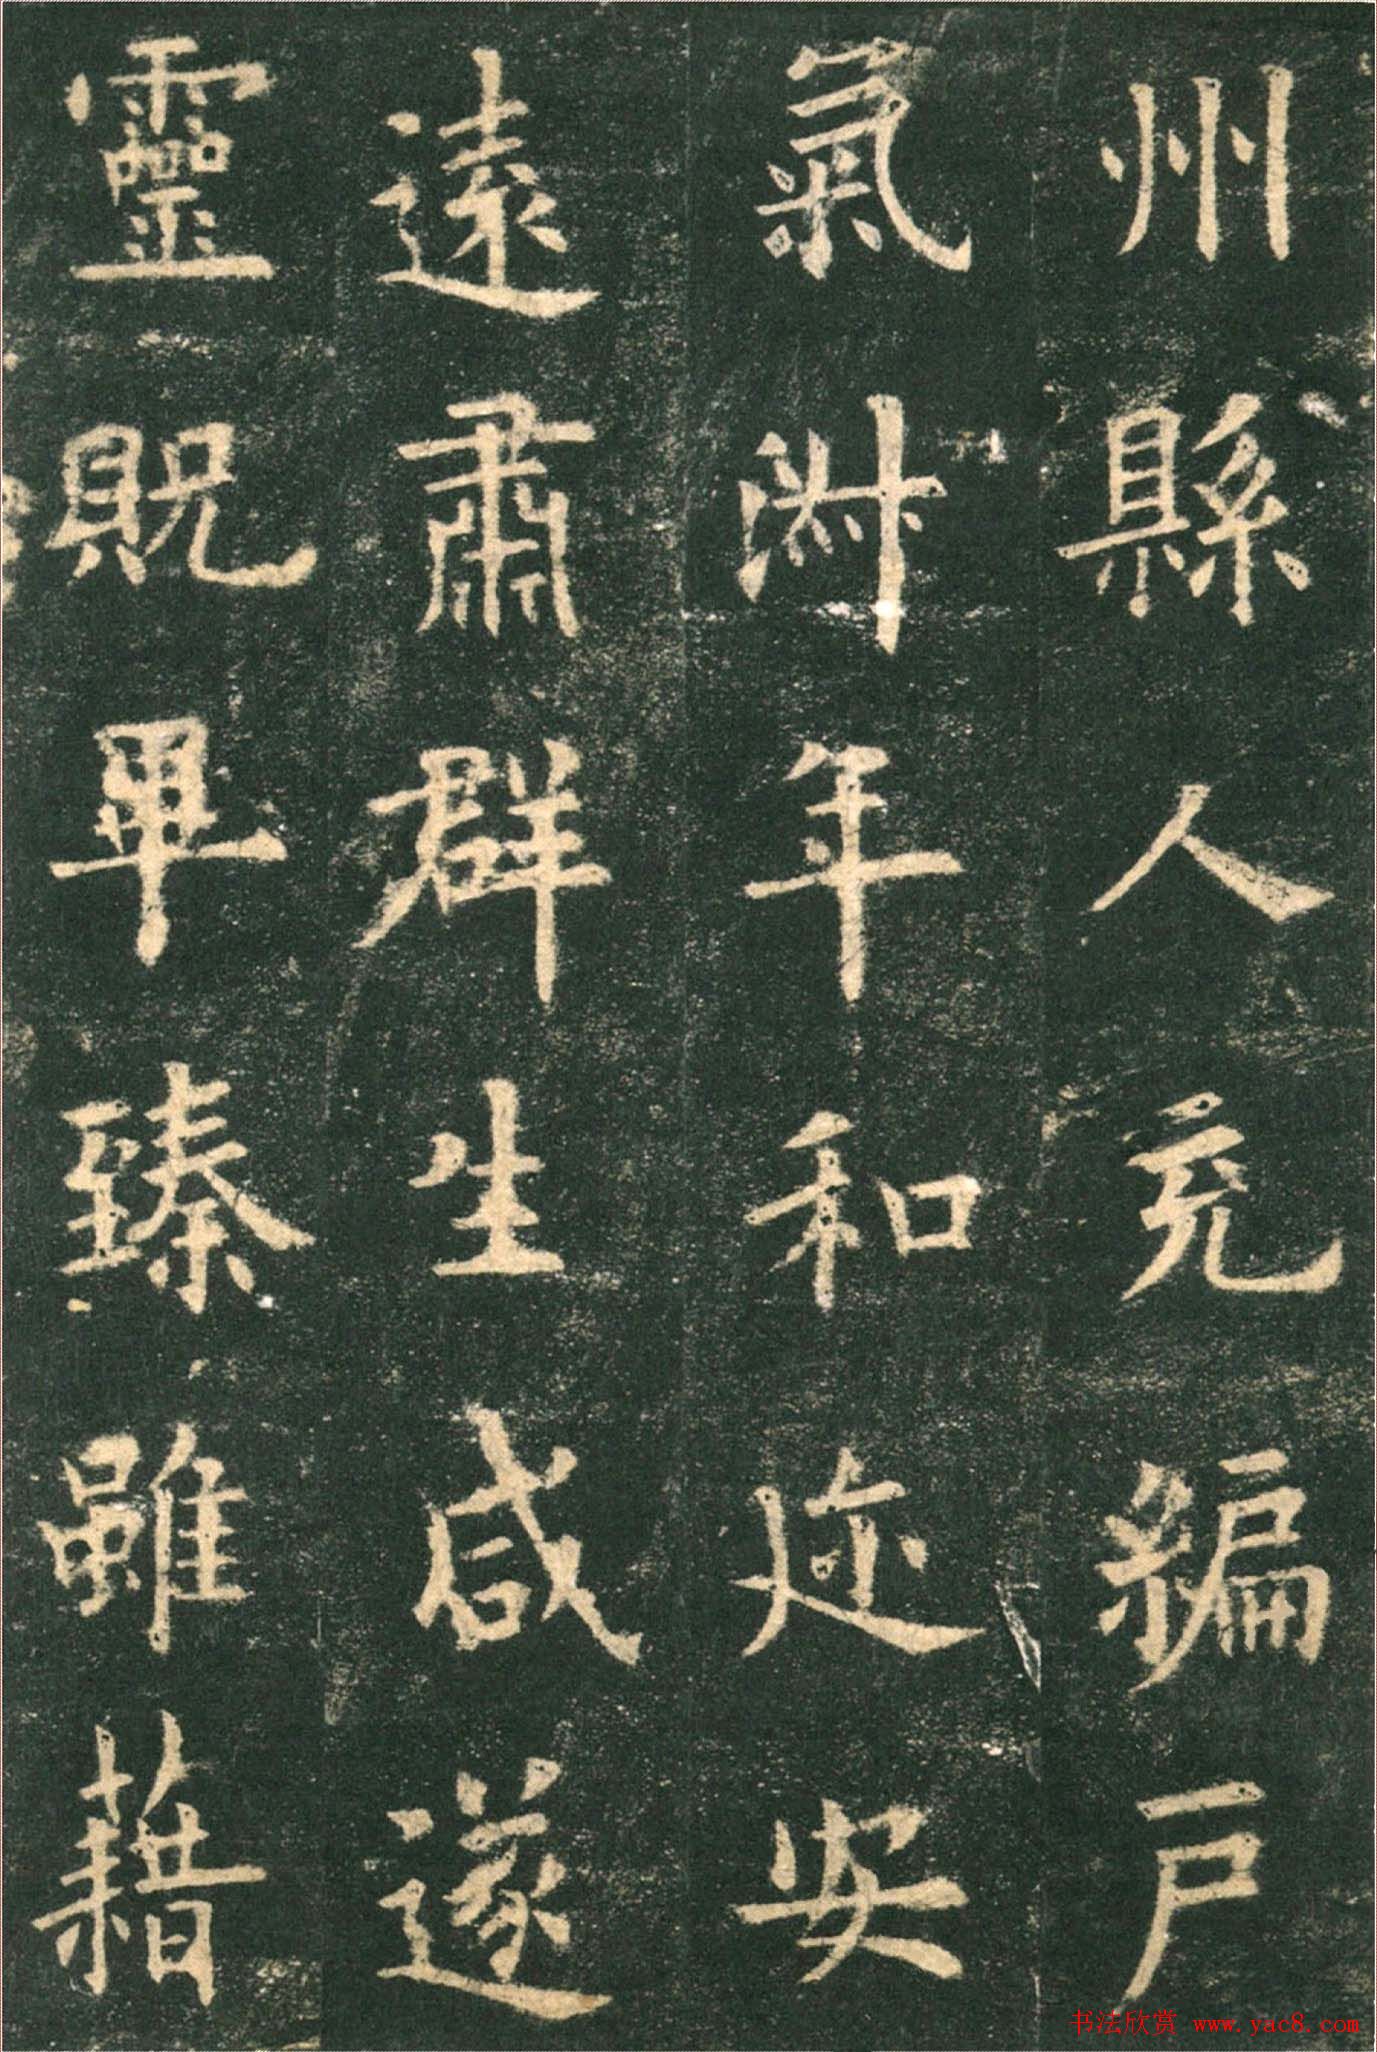 州縣人充編戶
氣淑年和迩安
遠肅群生咸遂
靈貺畢臻雖藉
书法欣赏 www.yac8.com